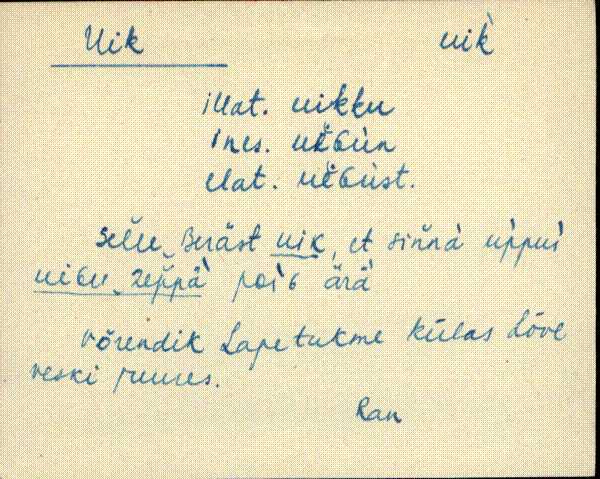 Uik uik̀
illat. uikku
ines. uiGùn
elat. uiGùst.
sellē Beräst uik, et sinnà uppuì
uiGu zeppä̀ poìG ärä̀
võrendik Lapetukme külas Lõve
veski juures.
Ran